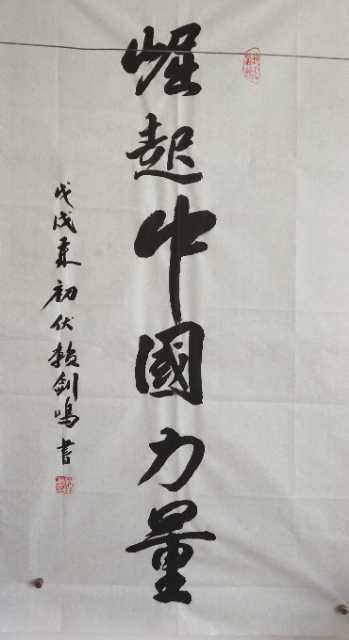 崛起中國力量
戊戌年初伏赖劍鳴書